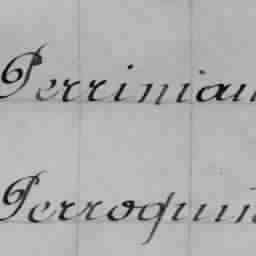 Perriniau
Perroquin